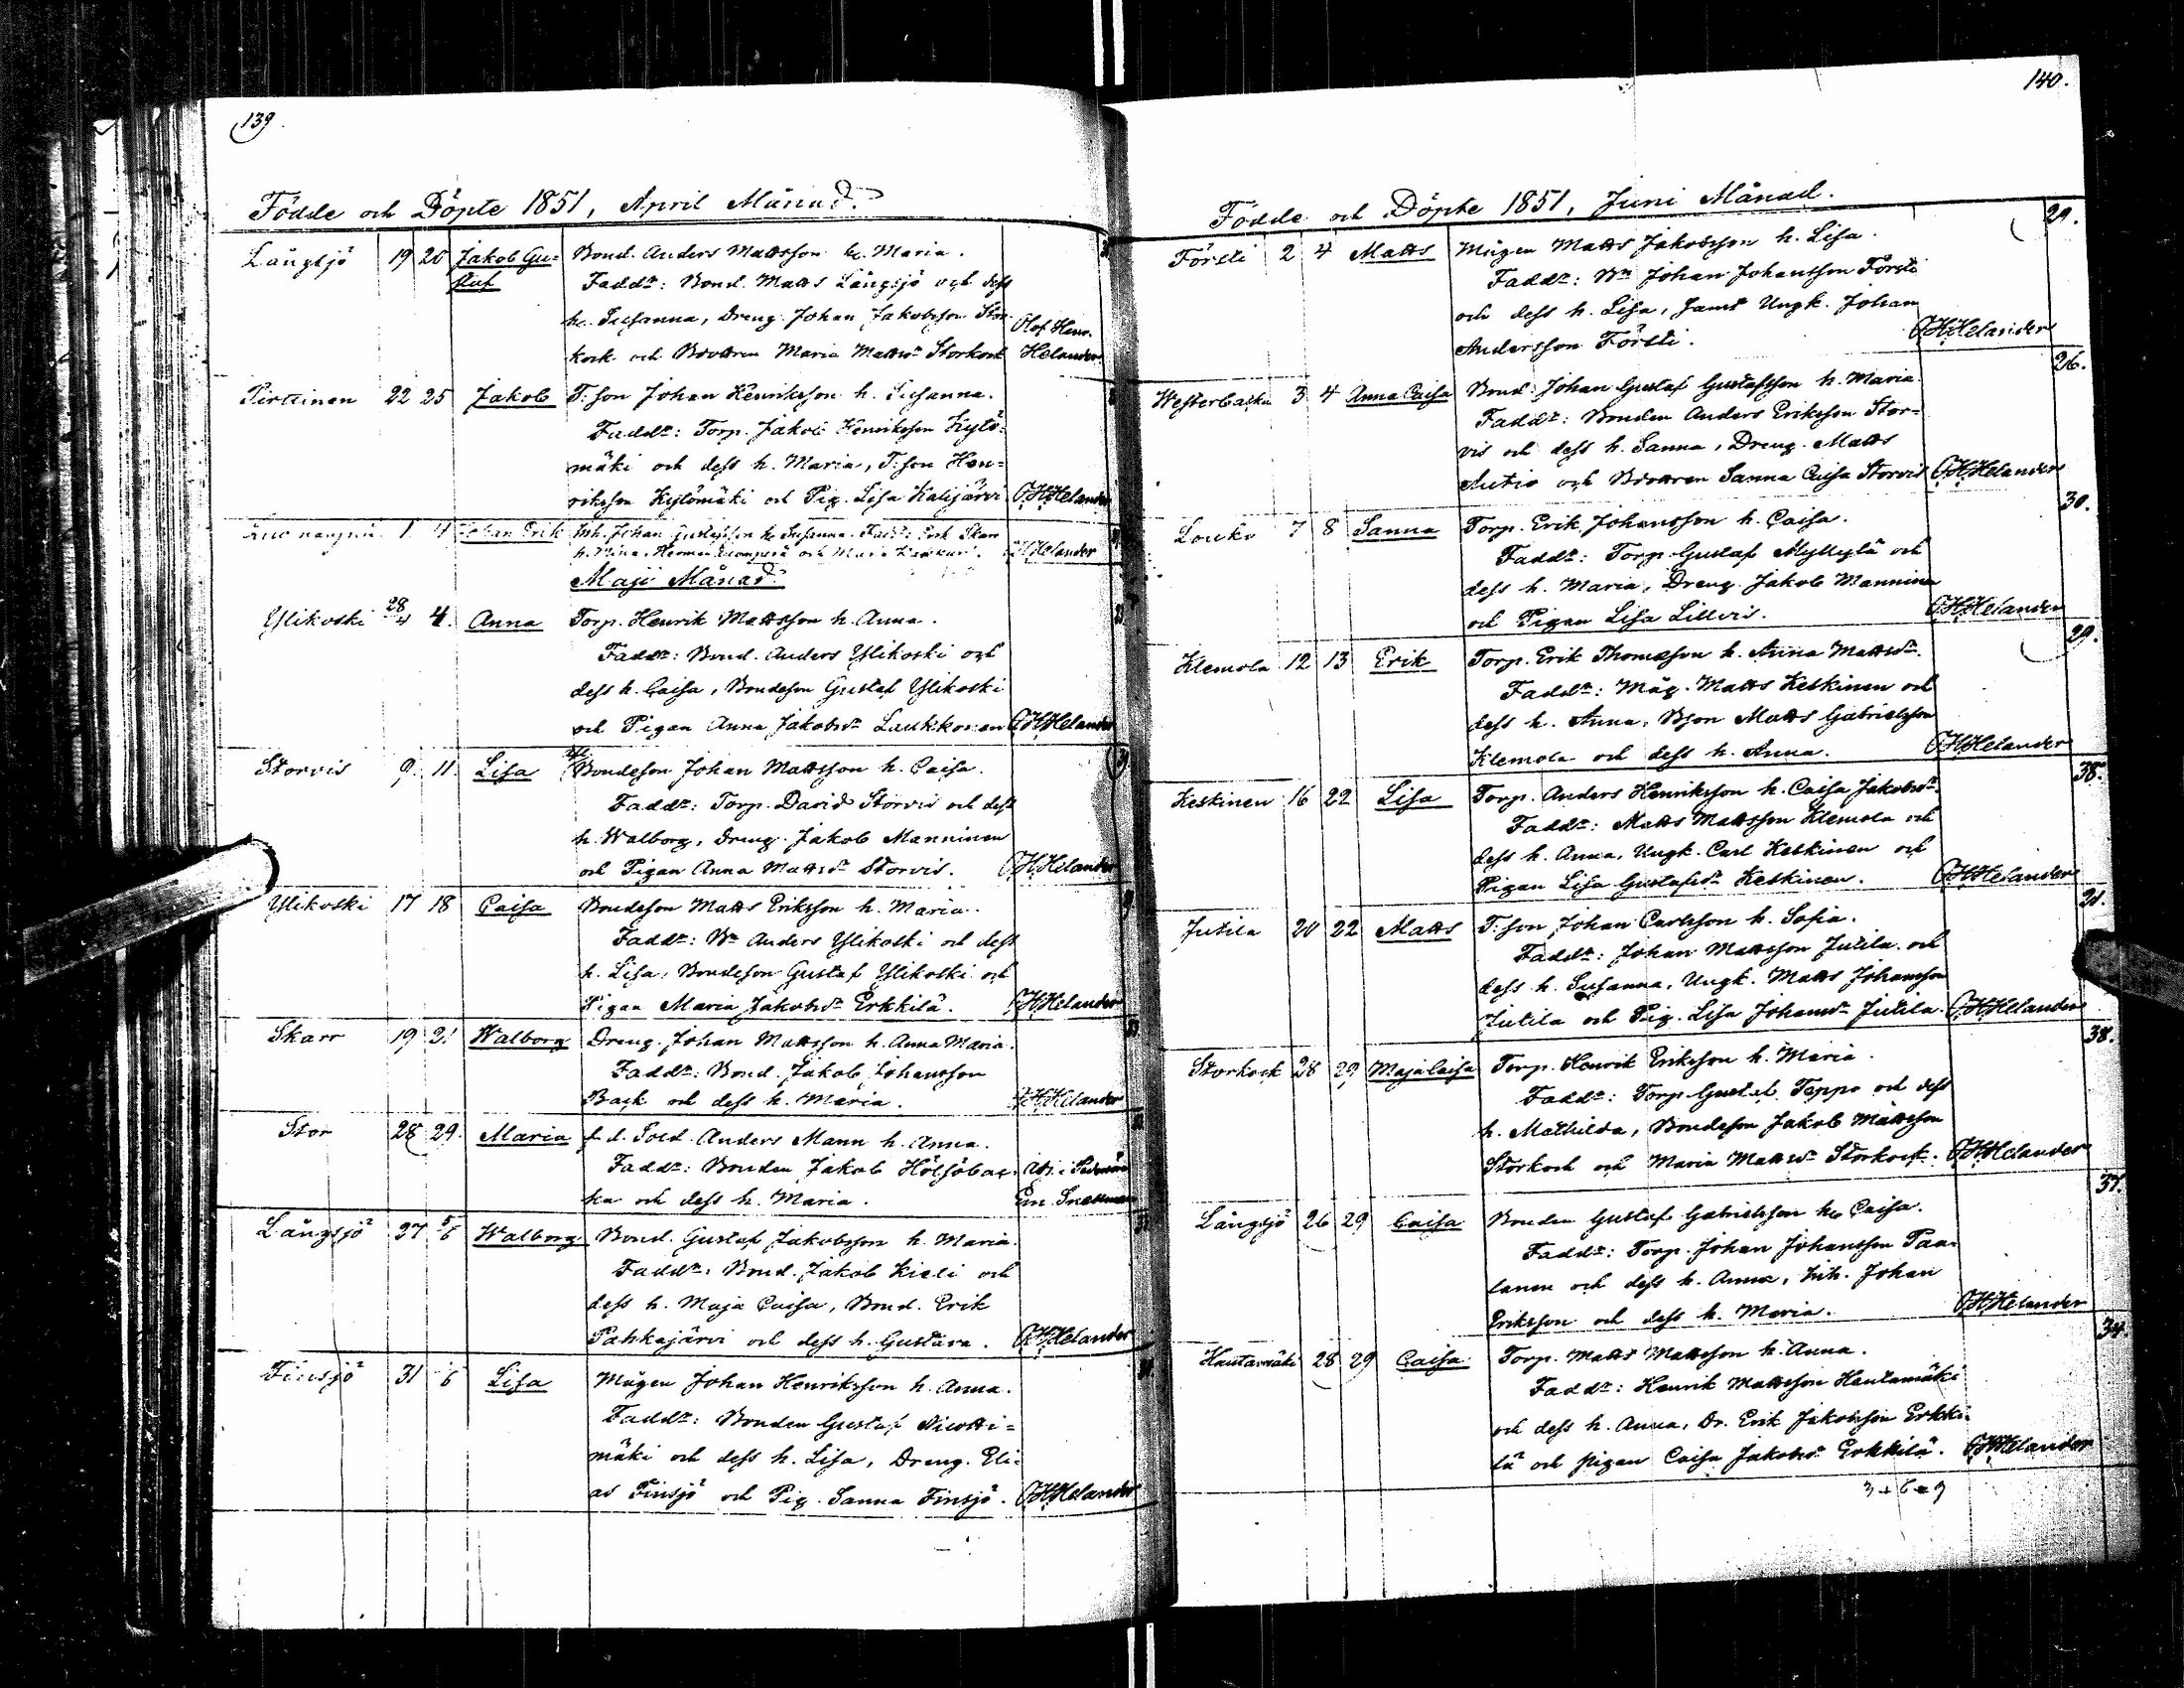 139.
Födde och Döpte 1851, April Månad.
Långsjö 19 20 Jakob Gu= Bond. Anders Mattsson h. Maria.
staf Fadd:r: Bond. Matts Långsjö och dess
h. Susanna, Dreng. Johan Jakobsson Stor= Olof Henr.
kock och Bdottren Maria Mattsd:r Storkock Helander
Pirttinen 22 25 Jakob T:son Johan Henriksson h. Susanna.
Fadd:r: Torp. Jakob Henriksson Kytö=
mäki och dess h. Maria, T:son Hen=
riksson Kytömäki och Pig. Lisa Kalijärvi OHHelander
1 4 Johan Erik Inh. Johan Gustafsson h. Susanna. Fadd:r: Erik Skarr
h. Mina, Herman och Maria OHHelander
Maji Månad.
Ylikoski 28/4 4. Anna Torp. Henrik Mattsson h. Anna.
Fadd:r: Bond. Anders Ylikoski och
dess h. Caisa, Bondeson Gustaf Ylikoski
och Pigan Anna Jakobsd:r Laukkonen OHHelander
Storvis 9. 11. Lisa Bondeson Johan Mattsson h. Caisa.
Fadd:r: Torp. David Storvis och dess
h. Walborg, Dreng. Jakob Manninen
och Pigan Anna Mattsd:r Storvis. OHHelander
Ylikoski 17 18 Caisa Bondeson Matts Eriksson h. Maria.
Fadd:r: B:n Anders Ylikoski och dess
h. Lisa, Bondeson Gustaf Ylikoski och
Pigan Maria Jakobsd:r Erkkilä. OHHelander
Skarr 19 21 Walborg Dreng. Johan Mattsson h. Anna Maria.
Fadd:r: Bond. Jakob Johansson
Back och dess h. Maria. OHHelander
Stor 28 29. Maria f. d. Sold. Anders Mann h. Anna.
Fadd:r: Bonden Jakob Hölsöbac=
ka och dess h. Maria. Em. Snellman
Långsjö 27 5/6 Walborg Bond. Gustaf Jakobsson h. Maria.
Fadd:r: Bond. Jakob Kieli och
dess h. Maja Caisa, Bond. Erik
Pahkajärvi och dess h. Gustava. OHHelander
Finsjö 31 /6 Lisa Mågen Johan Henriksson h. Anna.
Fadd:r: Bonden Gustaf Nicotti=
mäki och dess h. Lisa, Dreng. Eli=
as Finsjö och Pig. Sanna Finsjö. OHHelander
140.
Födde och Döpte 1851, Juni Månad.
Försti 2 4 Matts Mågen Matts Jakobsson h. Lisa. 29.
Fadd:r: B:n Johan Johansson Försti
och dess h. Lisa, samt Ungk. Johan
Andersson Försti. OHHelander
Westerbacka 3 4 Anna Caisa Bond. Johan Gustaf Gustafsson h. Maria. 26.
Fadd:r: Bonden Anders Eriksson Stor=
vis och dess h. Sanna, Dreng. Matts
Autio och Bdottren Sanna Caisa Storvis OHHelander
Louko 7 8 Sanna Torp. Erik Johansson h. Caisa. 30.
Fadd:r: Torp. Gustaf Myllylä och
dess h. Maria, Dreng. Jakob Manninen
och Pigan Lisa Lillvis. OHHelander
Klemola 12 13 Erik Torp. Erik Thomasson h. Anna Mattsd:r. 29.
Fadd:r: Måg. Matts Keskinen och
dess h. Anna, Bson Matts Gabrielsson
Klemola och dess h. Anna. OHHelander
Keskinen 16 22 Lisa Torp. Anders Henriksson h. Caisa Jakobsd:r. 38.
Fadd:r: Matts Mattsson Klemola och
dess h. Anna, Ungk. Carl Keskinen och
Pigan Lisa Gustafsd:r Keskinen. OHHelander
Jutila 20 22 Matts T:son Johan Carlsson h. Sofia. 21.
Fadd:r: Johan Mattsson Jutila och
dess h. Susanna, Ungk. Matts Johansson
Jutila och Pig. Lisa Johansd:r Jutila. OHHelander
Storkock 28 29 Maja Caisa Torp. Henrik Eriksson h. Maria. 38.
Fadd:r: Torp. Gustaf Teppo och dess
h. Mathilda, Bondeson Jakob Mattsson
Storkock och Maria Mattsd:r Storkock. OHHelander
Långsjö 26 29 Caisa Bonden Gustaf Gabrielsson h. Caisa. 37.
Fadd:r: Torp. Johan Johansson Paa=
lanen och dess h. Anna, Inh. Johan
Eriksson och dess h. Maria. OHHelander
Hautamäki 28 29 Caisa Torp. Matts Mattsson h. Anna. 34.
Fadd:r: Henrik Mattsson Hautamäki
och dess h. Anna, Dr. Erik Jakobsson Erkki=
lä och pigan Caisa Jakobsd:r Erkkilä. OHHelander
3+6=9